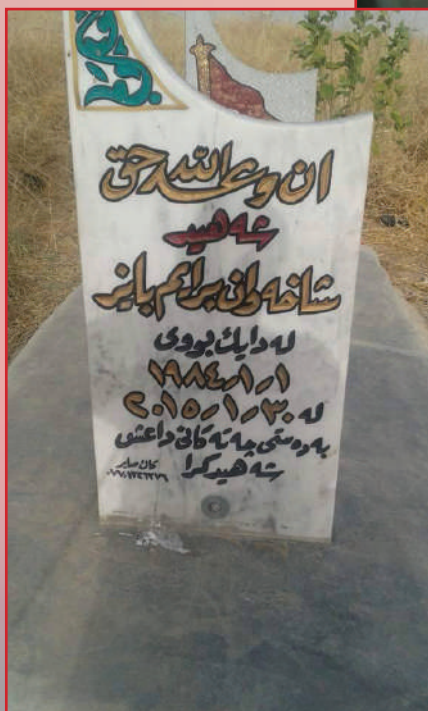 ان وعد الله حق
شەهید
شاخەوان برایم بایز
لە دایك بووی
١٩٨٤/١/١
لە ٢٠١٥/١/٣٠
بەدەستی چەتەکانی داعش
شەهید کرا